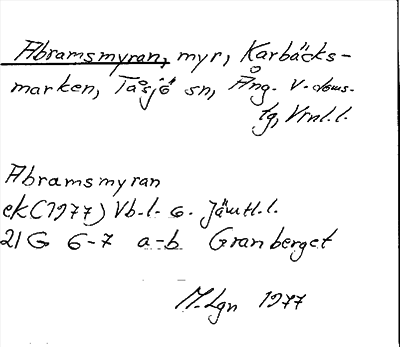 Abramsmyran, myr, Karbäcks-
marken, Tåsjö sn, Ång. v. doms.
tg, Vrnl.l.
Abramsmyran
ek (1977) Vb.l. o. Jämtl.l.
21 G 6-7 a-b Granberget
M. Lgn 1977